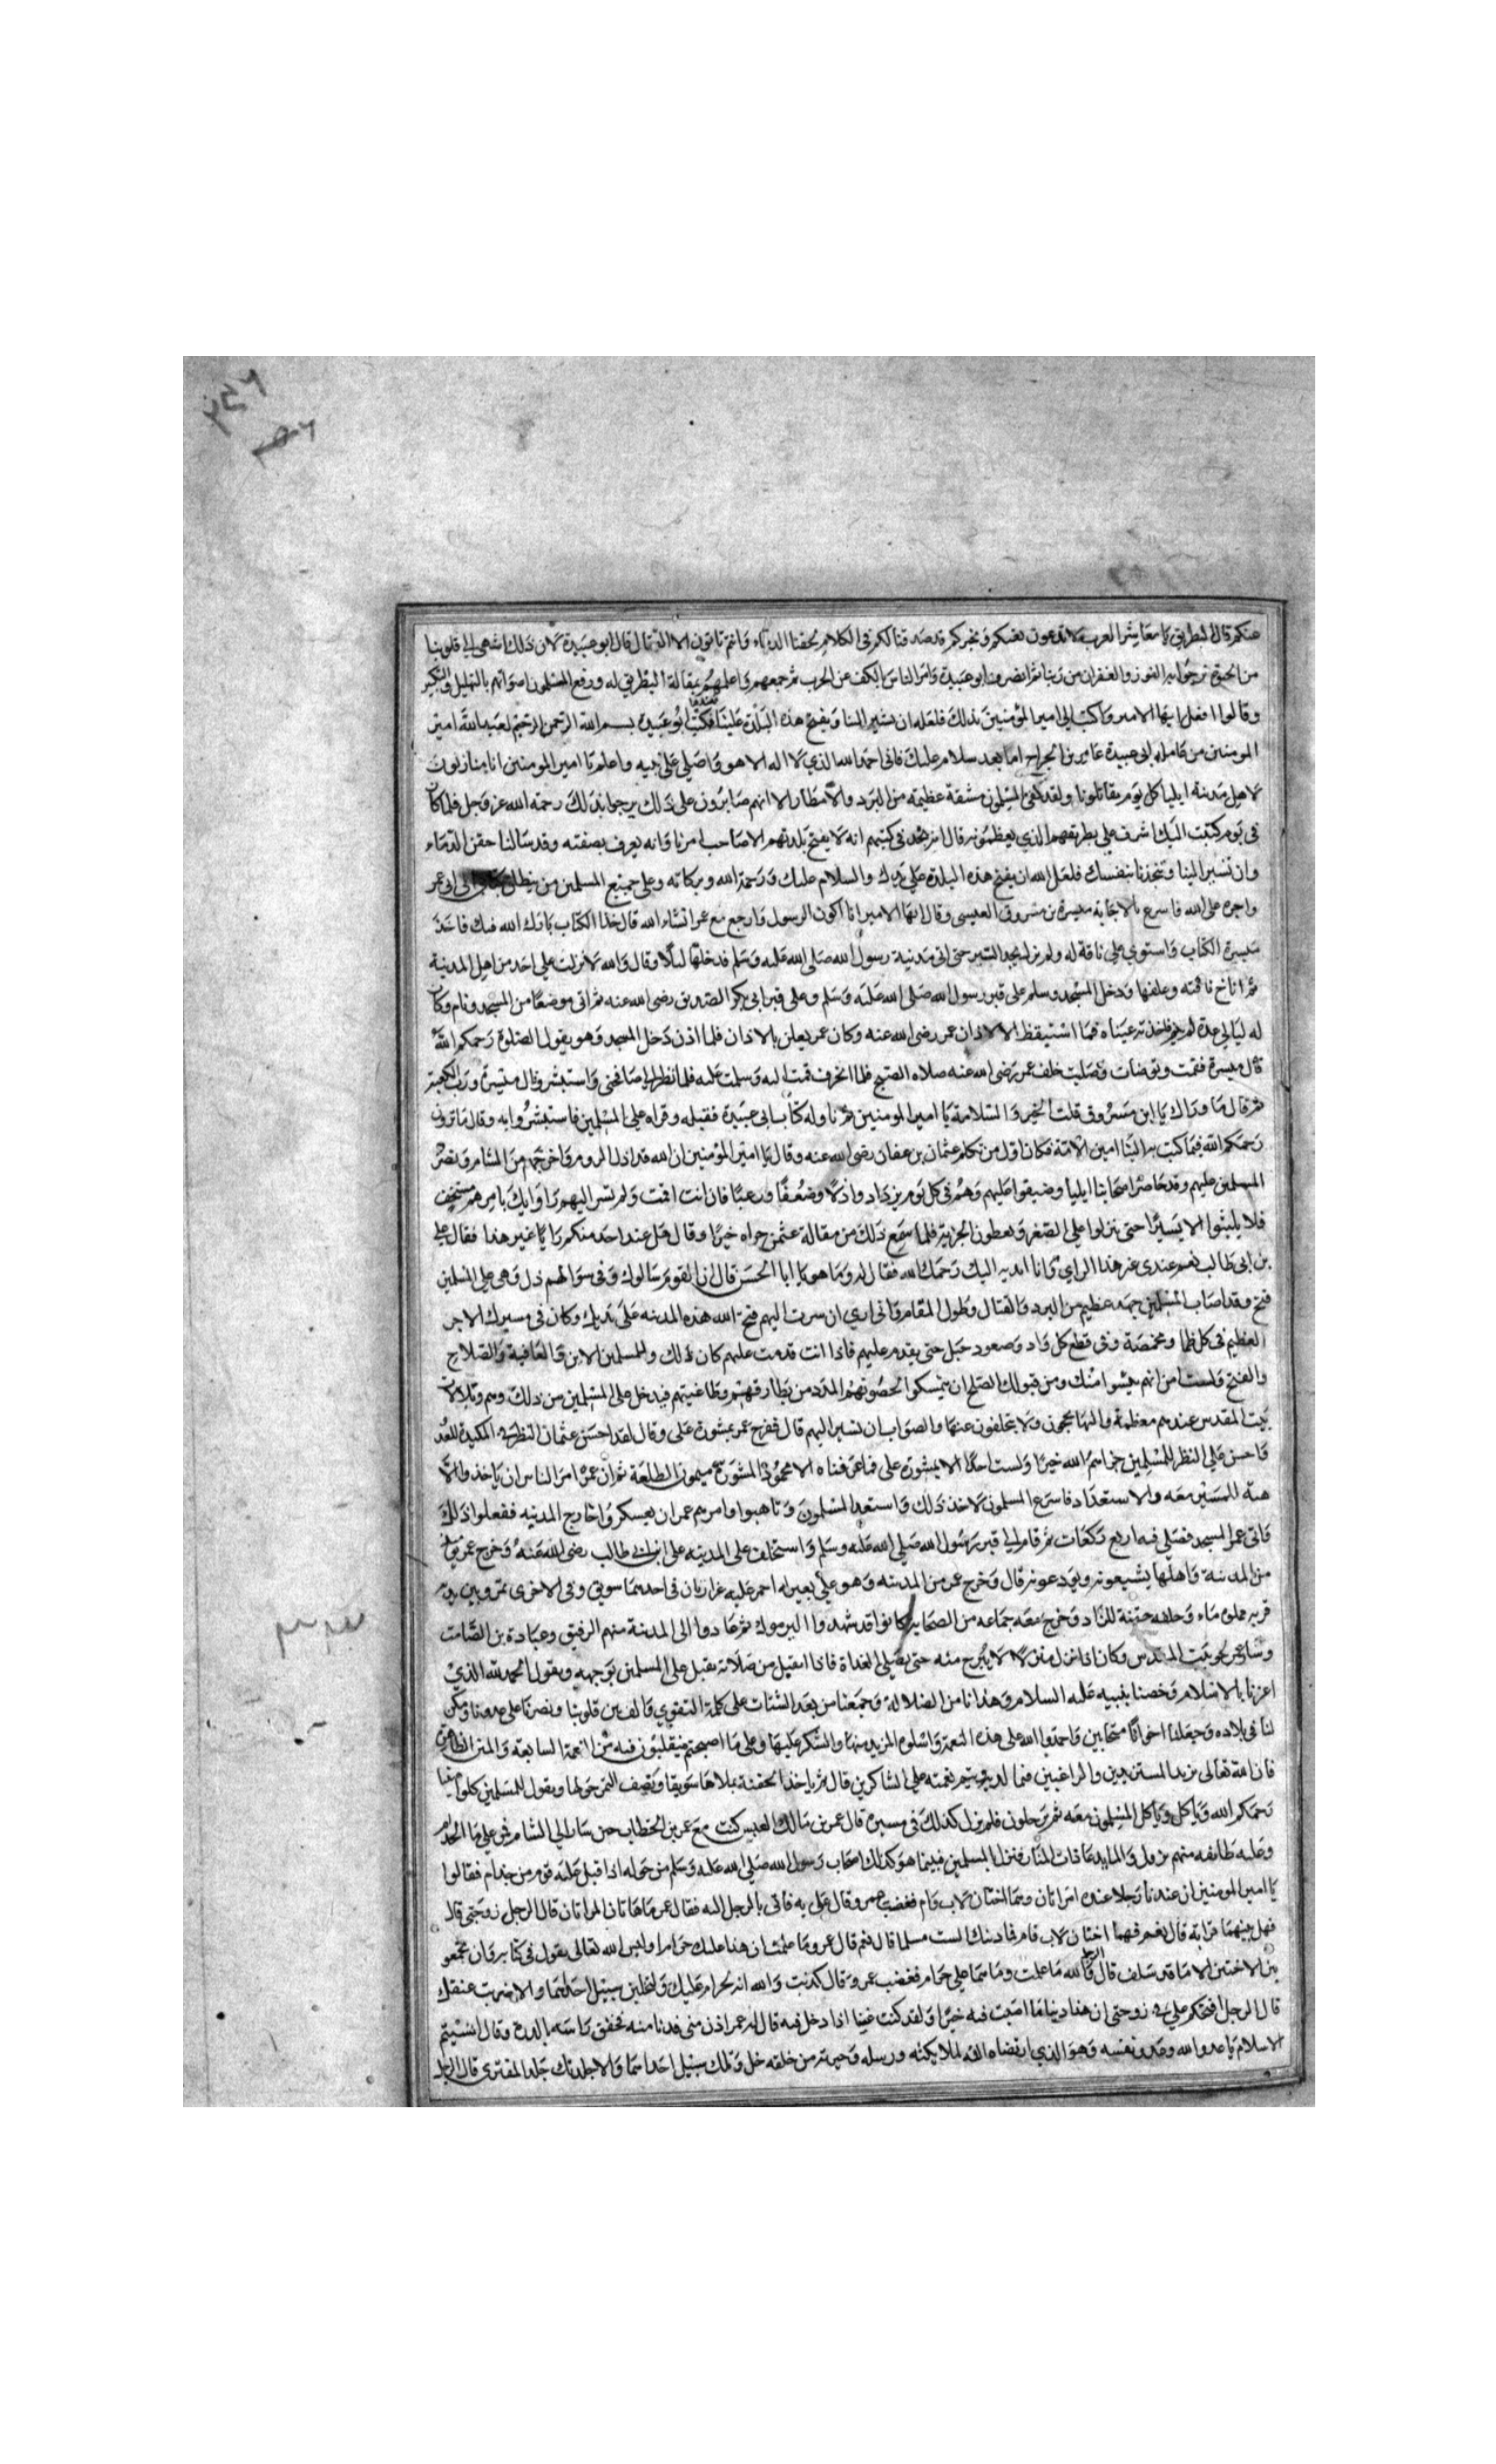 عنكم قال البطريق يا معاشر العرب لا تدعون بغيكم وتجبركم قد صدقناكم في الكلام بحقنا الدماء وانتم تابون الا القتال قال ابو عبيدة لان ذلك اشهى الى قلوبنا
من الحيوة نرجوا به الفوز والغفران من ربنا ثم انصرف ابو عبيدة وامر الناس بالكف عن الحرب ثم جمعهم واعلمهم بمقالة البطريق له ورفع المسلمون اصواتهم بالتهليل والتكبير
وقالوا افعل ايها الامير واكتب الي امير المؤمنين بذلك فلعله ان يسير الينا ويفتح هذه البلدة علينا فكتب ابو عبيدة بسم الله الرحمن الرحيم لعبد الله امير
المومنين من عامله ابي عبيدة عامر بن الجراح اما بعد سلام عليك فاني احمد الله الذي لا اله الا هو واصلي على نبيه واعلم يا امير المومنين انا منازلون
لاهل مدينة ايليا كل يوم يقاتلونا ولقد لقي المسلمون مشقة عظيمة من البرد والامطار الا انهم صابرون على ذلك يرجوا بذلك رحمة الله عز وجل فلما كان
في يوم كتبت اليك اشرف علي بطريقهم الذي يعظمونه قال انه يجد في كتبهم انه لا يفتح بلدتهم الا صاحب امرنا وانه يعرف بصفته وقد سالنا حقن الدماء
وان تسير الينا وتنجدنا بنفسك فلعل الله ان يفتح هذه البلدة علي يديك والسلام عليك ورحمة الله وبركاته وعلى جميع المسلمين من
واجره على الله فاسرع بالاجابة ميسرة بن مسروق العبسي وقال ايها الامير انا اكون الرسول وارجع مع عمر انشاء الله قال خذ الكتاب بارك الله فيك فاخذ
ميسرة الكتاب واستوي على ناقة له ولم يزل يجد السير حتى اتى مدينة رسول الله صلى الله عليه وسلم فدخلها ليلا وقال والله لا نزلت على احد من اهل المدينة
ثم اناخ ناقته وعلفها ودخل المسجد وسلم على قبر رسول الله صلى الله عليه وسلم وعلى قبر ابي بكر الصديق رضي الله عنه ثم اتى موضعا من المسجد ونام وكان
له ليالي عدة لم ينم فلخذته عيناه فما استيقظ الا لاذان عمر رضي الله عنه وكان عمر يعلن بالاذان فلما اذن دخل المسجد وهو يقول الصلوة رحمكم الله
قال ميسرة فقمت وتوضات وصليت خلف عمر رضي الله عنه صلاة الصبح فلما انحرف قمت اليه وسلمت عليه فلما نظر الي صافحني واستبشر وقال ميسرة ورب الكعبة
ثم قال ما وراك يا ابن مسروق قلت الخير والسلامة يا امير المومنين ثم ناوله كتاب ابي عبيدة فقبله وقراه على المسلمين فاستبشروا به وقال ما ترون
رحمكم الله فيما كتب به الينا امين الامة فكان اول من تكلم عثمان بن عفان رضي الله عنه وقال يا امير المؤمنين ان الله قد اذل الروم واخرجهم من الشام ونصر
المسلمين عليهم وقد حاصر اصحابنا ايليا وضيقوا عليهم وهم في كل يوم يزدادوا ذلا وضعفا ورعبا فان انت اقمت ولم تسر اليهم راوا انك بامرهم مستخف
فلا يلبثوا الا يسيرا حتى ينزلوا على الصغر ويعطون الجزية فلما سمع ذلك من مقالة عثمن جزاه خيرا وقال هل عند احد منكم رايا غير هذا فقال علي
بن ابي طالب نعم عندي غير هذا الراي وانا ابديه اليك رحمك الله فقال له وما هو يا ابا الحسن قال ان القوم سالوك وفي سوالهم ذل وهي على المسلمين
فتح وقد اصاب المسلمين جهد عظيم من البرد والقتال وطول المقام واني اري ان سرت اليهم فتح الله هذه المدينة على يديك وكان في مسيرك الاجر
العظيم في كل ظما ومخمصة وفي قطع كل واد وصعود جبل حتى يقدم عليهم فاذا انت قدمت عليهم كان لك وللمسلمين الامن والعافية والصلاح
والفتح ولست امن انهم ييسوا منك ومن قبولك الصلح ان يتمسكوا لحصونهم المدد من بطارقهم وطاغيتهم فيدخل على المسلمين من ذلك
بيت المقدس عندهم معظمة واليها يحجون ولا يتخلفون عنها والصواب ان تسير اليهم قال ففرح عمر بمشورة علي وقال لقد احسن عثمان النظر في المكيدة للعدو
واحسن علي النظر للمسلمين جزاهم الله خيرا ولست اخذا الا بمشورة علي فما عرفناه الا محمود المشورة ميمون الطلعة ثم ان عمر امر الناس ان ياخذوا الا
هبة للمسير معه والاستعداد فاسرع المسلمون لاخذ ذلك واستعد المسلمون وتاهبوا وامرهم عمر ان يعسكروا خارج المدينة ففعلوا ذلك
واتى عمر المسجد فصلى فيه اربع ركعات ثم قام الي قبر رسول الله صلى الله عليه وسلم واستخلف على المدينة علي ابن ابي طالب رضي الله عنه وخرج عمر
من المدينة واهلها يشيعونه ويودعونه قال وخرج عمر من المدينة وهو علي بعير له احمر عليه غرارتان في احدهما سويق وفي الاخرى تمر وبين يديه
قربة مملوة ماء وخلفه جفنة للزاد وخرج معه جماعة من الصحابة كانوا قد شهدوا اليرموك ثم عادوا الى المدينة منهم الزبير وعبادة بن الصامت
وسار عمر نحو بيت المقدس وكان اذا نزل منزلا لا يبرح منه حتى يصلي الغداة فاذا انفتل من صلاته يقبل على المسلمين بوجهه ويقول الحمد لله الذي
اعزنا بالاسلام وخصنا بنبيه عليه السلام وهدانا من الضلالة وجمعنا من بعد الشتات على كلمة التقوي والف بين قلوبنا ونصرنا على عدونا ومكن
لنا في بلاده وجعلنا اخوانا متحابين فاحمدوا الله على هذه النعمة واسئلوه المزيد منها والشكر عليها وعلى ما اصبحتم تتقلبون فيه من النعمة السابغة والمنن الظاهرة
فان الله تعالى يزيد المستزيدين والراغبين فيما لديه ويتم نعمته على الشاكرين قال ثم ياخذ الجفنة يملاها سويقا ويصف التمر حولها ويقول للمسلمين كلوا هنيا
رحمكم الله وياكل وياكل المسلمون معه ثم يرحلون فلم يزل كذلك في مسيره قال عمر بن مالك العبسي كنت مع عمر بن الخطاب حين سار الى الشام فمر على ما لجذام
وعليه طائفه منهم نزول والماء يدعا ذات المنار فنزل بالمسلمين فبينما هو كذلك اصحاب رسول الله صلى الله عليه وسلم من حوله اذا قبل عليه قوم من جذام فقالوا
يا امير المومنين ان عندنا رجلا عنده امراتان وهما اختان لاب وام فغضب عمر وقال علي به فاتي بالرجل اليه فقال عمر ما هاتان المراتان قال الرجل زوجتي قال
فهل بينهما قرابة قال نعم فهما اختان لاب وام قال فما دينك الست مسلما قال نعم قال عمر وما علمت ان هذا عليك حراما وليس الله تعالى يقول في كتابه وان تجمعوا
بين الاختين الا ما قد سلف قال الرجل والله ما علمت وما هما علي حرام فغضب عمر وقال كذبت والله انه لحرام عليك ولتخلين سبيل احداهما والا ضربت عنقك
قال الرجل افتحكم علي في زوجتي ان هذا دينا ما اصبت فيه خيرا ولقد كنت غنيا اذا دخل فيه قال له عمر ادن مني فدنا منه فخفق راسه بالدرة وقال اتسيم
الاسلام يا عدو الله وعدو نفسه وهو الذي ارتضاه الله لملايكته ورسله وخيرته من خلقه خل ويلك سبيل احداهما والا جلدتك جلد المفتري قال الرجل